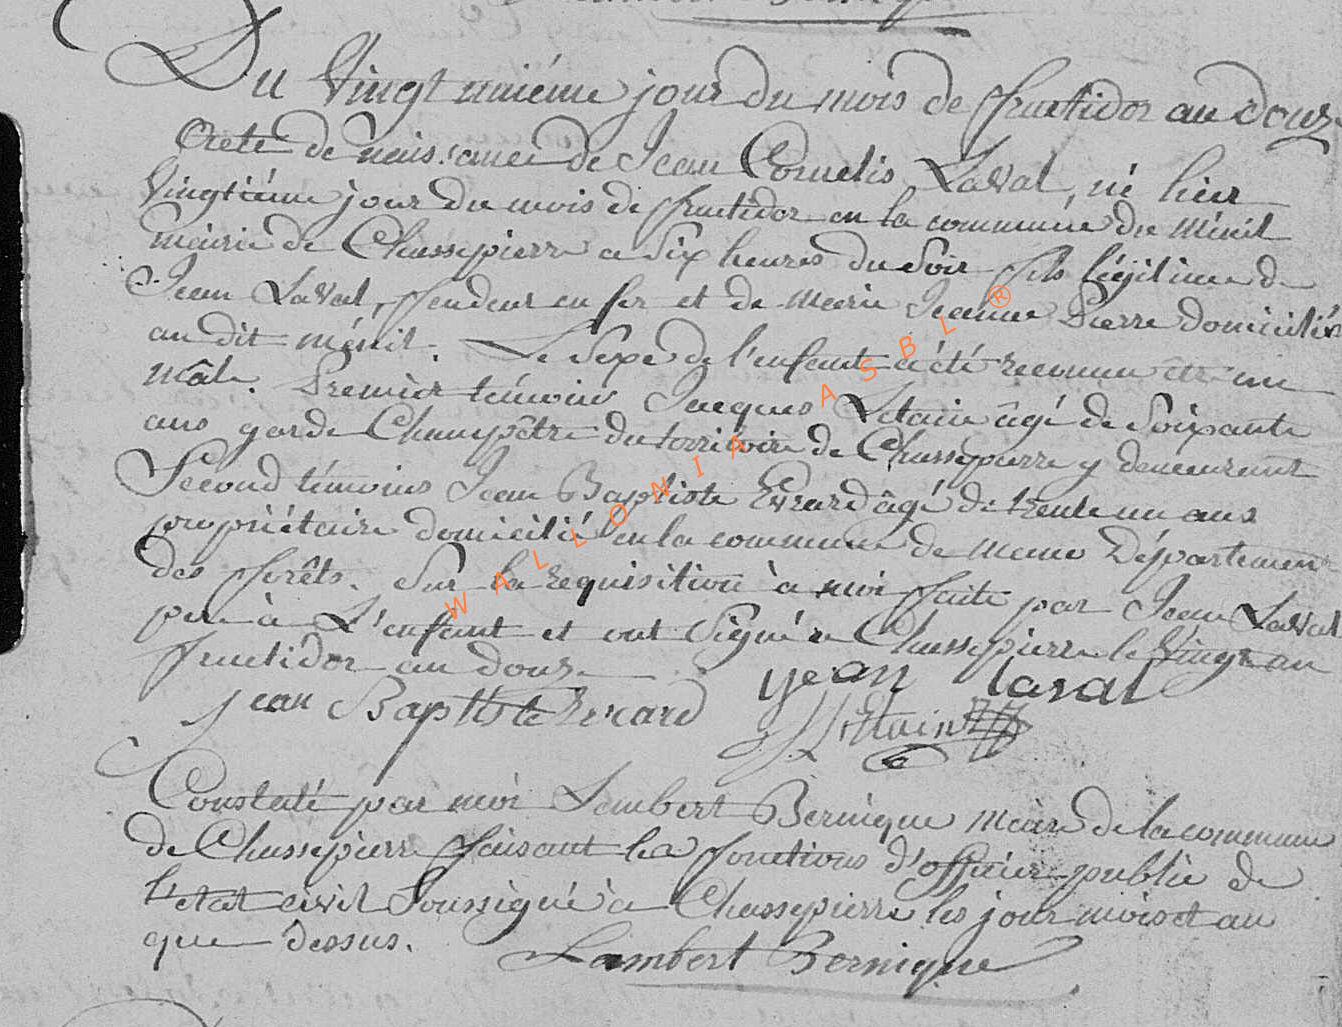 Du Vingt uniéme jour du mois de fructidor an douze
Acte de naissance de Jean Cornelis Laval, né hier
Vingtiéme jour du mois de fructidor en la commune du ménil
mairie de Chassepierre a Six heures du Soir fils légitime de
Jean Laval, fendeur en fer et de Marie Jeanne Pierre domiciliés
au dit ménil. Le Sexe de l'enfant a été reconnu être un
Mâle. Premier témoins Jacques Letain âgé de Soixante
ans garde Champêtre du territoire de Chassepierre y demeurant
Second témoins Jean Baptiste Evrard âgé de trente un ans
propriétaire domicilié en la commune de meme Département
des forêts. Sur la requisition à moi faite par Jean Laval
pere à L'enfant et ont Signé a Chassepierre le Vingt un
fructidor an douze
jean Baptiste Evrard
yean laval
Constaté par moi Lambert Bernique Maire de la commune
de Chassepierre faisant les fonctions d'officier public de
l'etat civil Soussigné à Chassepierre les jour mois et an
que dessus.
Lambert Bernique
WALLONIA ASBL ®